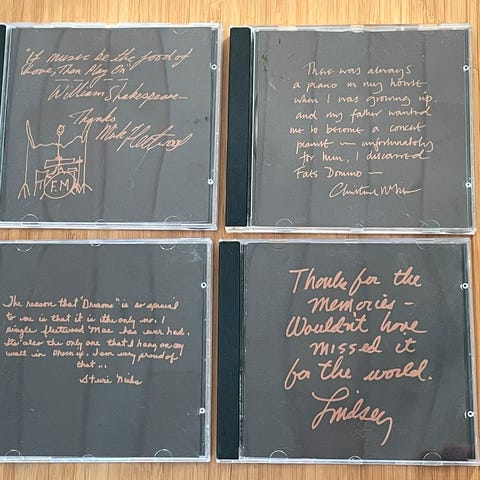 "If music be the food of
Love, Then Play On"
William Shakespeare
Thanks
Mick Fleetwood
F.M
There was always
a piano in my house
when I was growing up,
and my father wanted
me to become a concert
pianist — unfortunately
for him, I discovered
Fats Domino —
Christine McVie
The reason that "Dreams" is so special
to me is that it is the only no. 1
single Fleetwood Mac has ever had.
Its also the only one that I hang on my
wall in Phoenix. I am very proud of
that...
Stevie Nicks
Thanks for the
memories —
Wouldn't have
missed it
for the world.
Lindsey